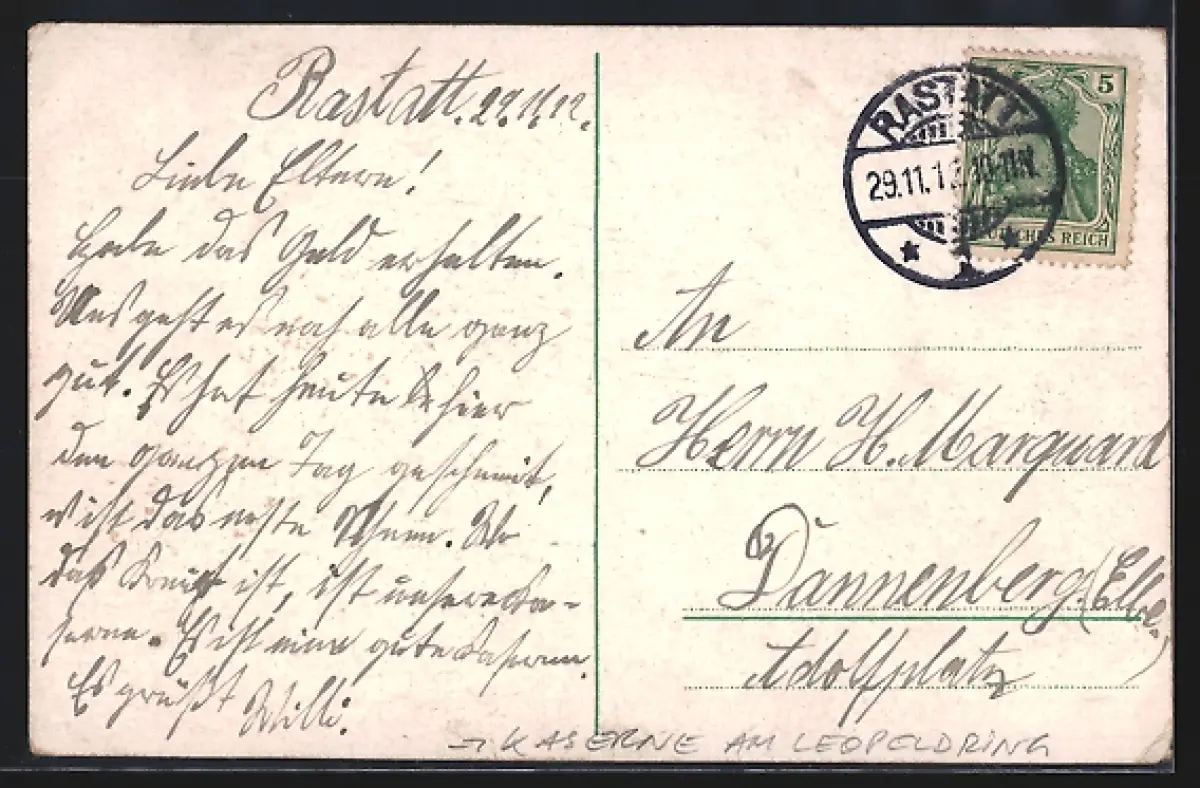 Rastatt. 29.11.12.
Liebe Eltern!
Habe das Geld erhalten.
Uns geht es noch alle ganz
gut. Es hat heute hier
den ganzen Tag geschneit,
ist das erste Schnee. Wo
das Kreuz ist, ist unsere Ka-
serne. Es ist eine gute Kaserne.
Es grüßt
Willi.
RASTATT
29.11.12. 10-11N.
5
DEUTSCHES REICH
An
Herrn H. Marquard
Dannenberg. (Elbe.)
Adolfplatz
→ KASERNE AM LEOPOLDRING